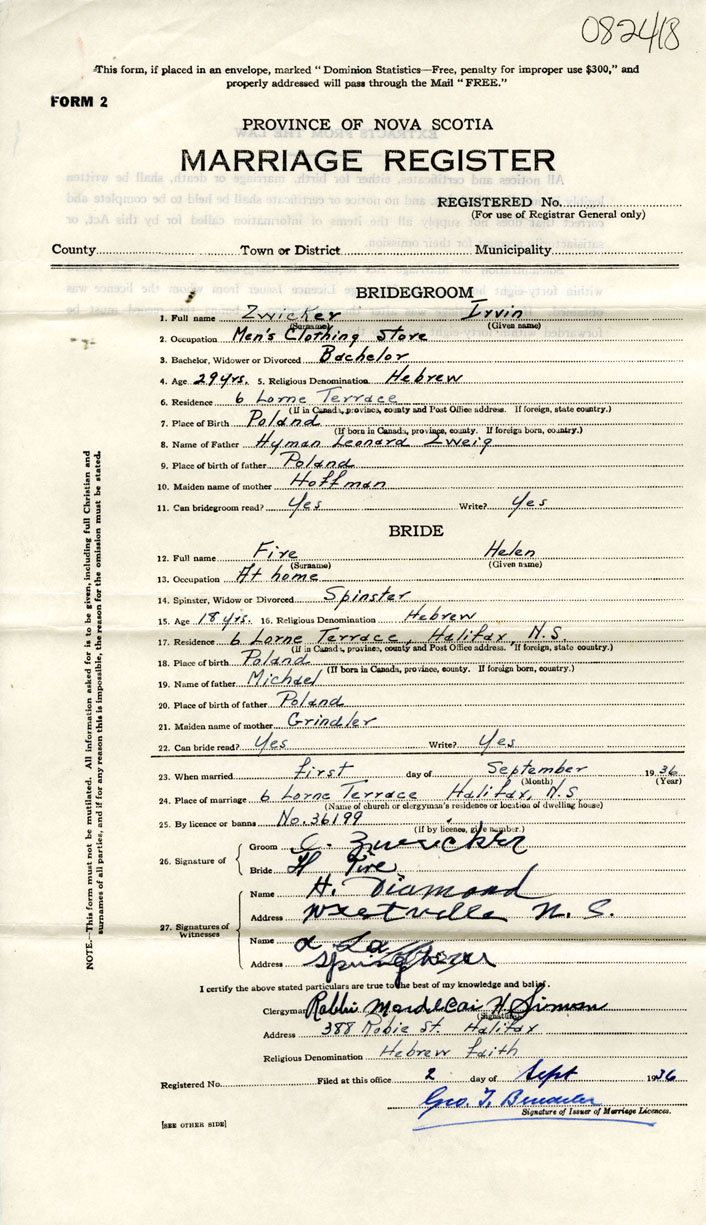 082418
This form, if placed in an envelope, marked "Dominion Statistics—Free, penalty for improper use $300," and
properly addressed will pass through the Mail "FREE."
FORM 2
PROVINCE OF NOVA SCOTIA
MARRIAGE REGISTER
REGISTERED No.
(For use of Registrar General only)
County Town or District Municipality
BRIDEGROOM
1. Full name Zwicker Irvin
(Surname) (Given name)
2. Occupation Men's Clothing Store
3. Bachelor, Widower or Divorced Bachelor
4. Age 29 yrs. 5. Religious Denomination Hebrew
6. Residence 6 Lorne Terrace
(If in Canada, province, county and Post Office address. If foreign, state country.)
7. Place of Birth Poland
(If born in Canada, province, county. If foreign born, country.)
8. Name of Father Hyman Leonard Zweig
9. Place of birth of father Poland
10. Maiden name of mother Hoffman
11. Can bridegroom read? Yes Write? Yes
BRIDE
12. Full name Fire Helen
(Surname) (Given name)
13. Occupation At home
14. Spinster, Widow or Divorced Spinster
15. Age 18 yrs. 16. Religious Denomination Hebrew
17. Residence 6 Lorne Terrace, Halifax, N.S.
(If in Canada, province, county and Post Office address. If foreign, state country.)
18. Place of birth Poland
(If born in Canada, province, county. If foreign born, country.)
19. Name of father Michael
20. Place of birth of father Poland
21. Maiden name of mother Grindler
22. Can bride read? Yes Write? Yes
23. When married first day of September 1936
(Month) (Year)
24. Place of marriage 6 Lorne Terrace Halifax, N.S.
(Name of church or clergyman's residence or location of dwelling house)
25. By licence or banns No. 36199
(If by licence, give number.)
26. Signature of Groom
Bride H Fire
27. Signatures of Witnesses Name H. Diamond
Address Westville N. S.
Name
Address
I certify the above stated particulars are true to the best of my knowledge and belief.
Clergyman Rabbi Mordecai H Simon
(Signature)
Address 388 Robie St. Halifax
Religious Denomination Hebrew faith
Registered No. Filed at this office 2 day of Sept 1936
Geo. T.
Signature of Issuer of Marriage Licences.
[SEE OTHER SIDE]
NOTE.—This form must not be mutilated. All information asked for is to be given, including full Christian and
surnames of all parties, and if for any reason this is impossible, the reason for the omission must be stated.